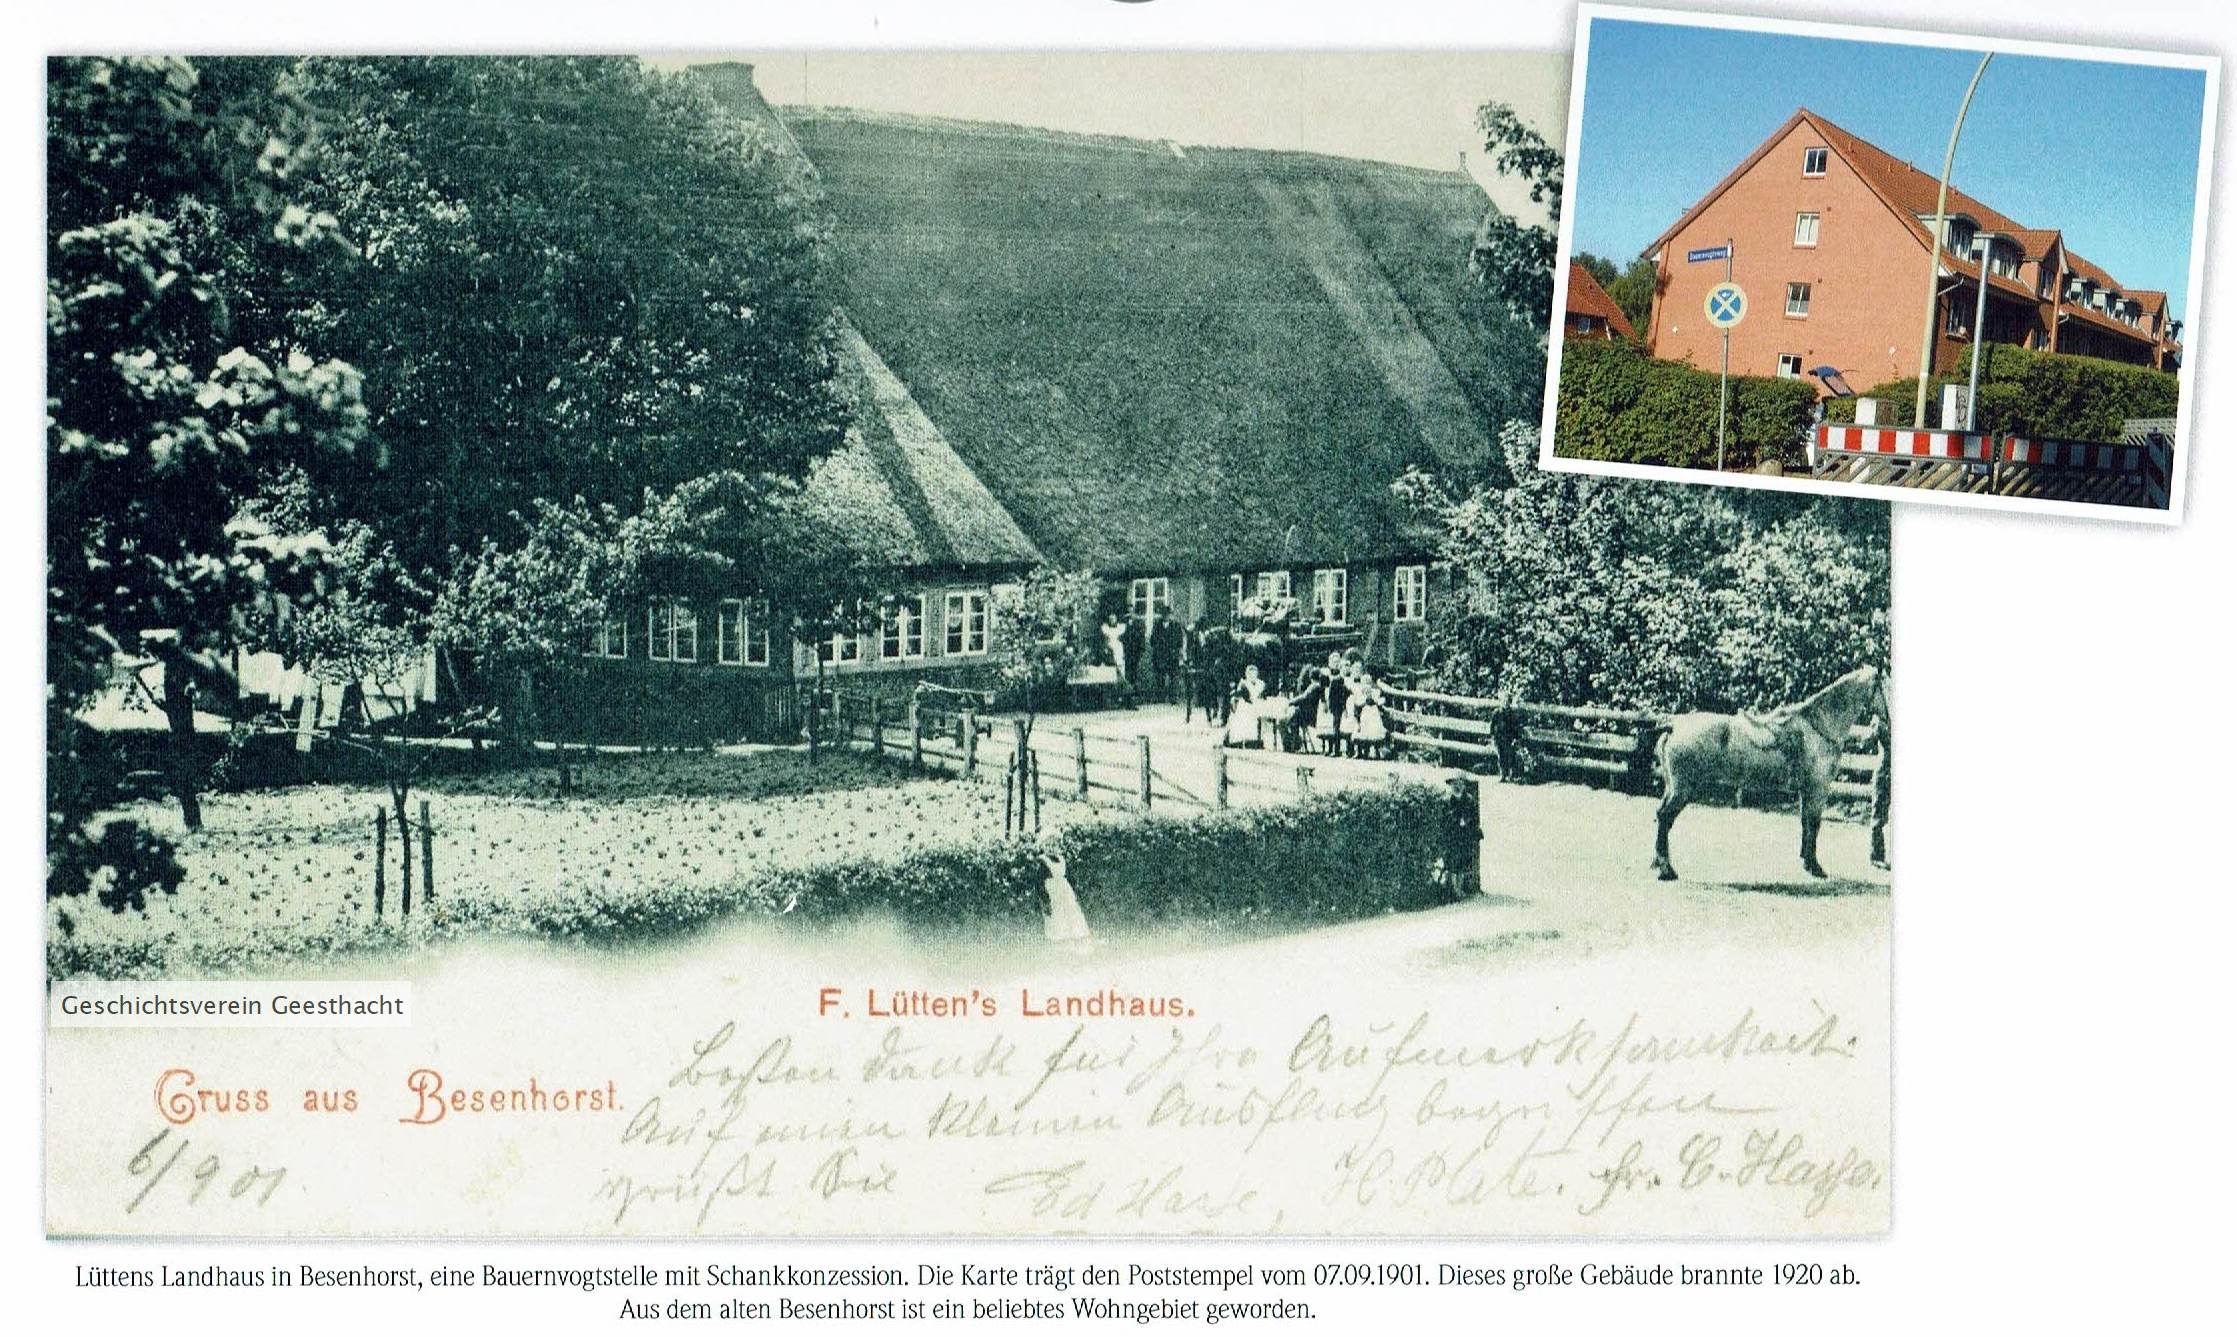 Bauernvogtsweg
F. Lütten's Landhaus.
Geschichtsverein Geesthacht
Gruss aus Besenhorst.
Besten Dank für Ihre Aufmerksamkeit.
Auf einem kleinen Ausflug begriffen
grüßt Sie Ed Hasse, H. Plate. Fr. C. Hasse.
6/9 01.
Lüttens Landhaus in Besenhorst, eine Bauernvogtstelle mit Schankkonzession. Die Karte trägt den Poststempel vom 07.09.1901. Dieses große Gebäude brannte 1920 ab.
Aus dem alten Besenhorst ist ein beliebtes Wohngebiet geworden.